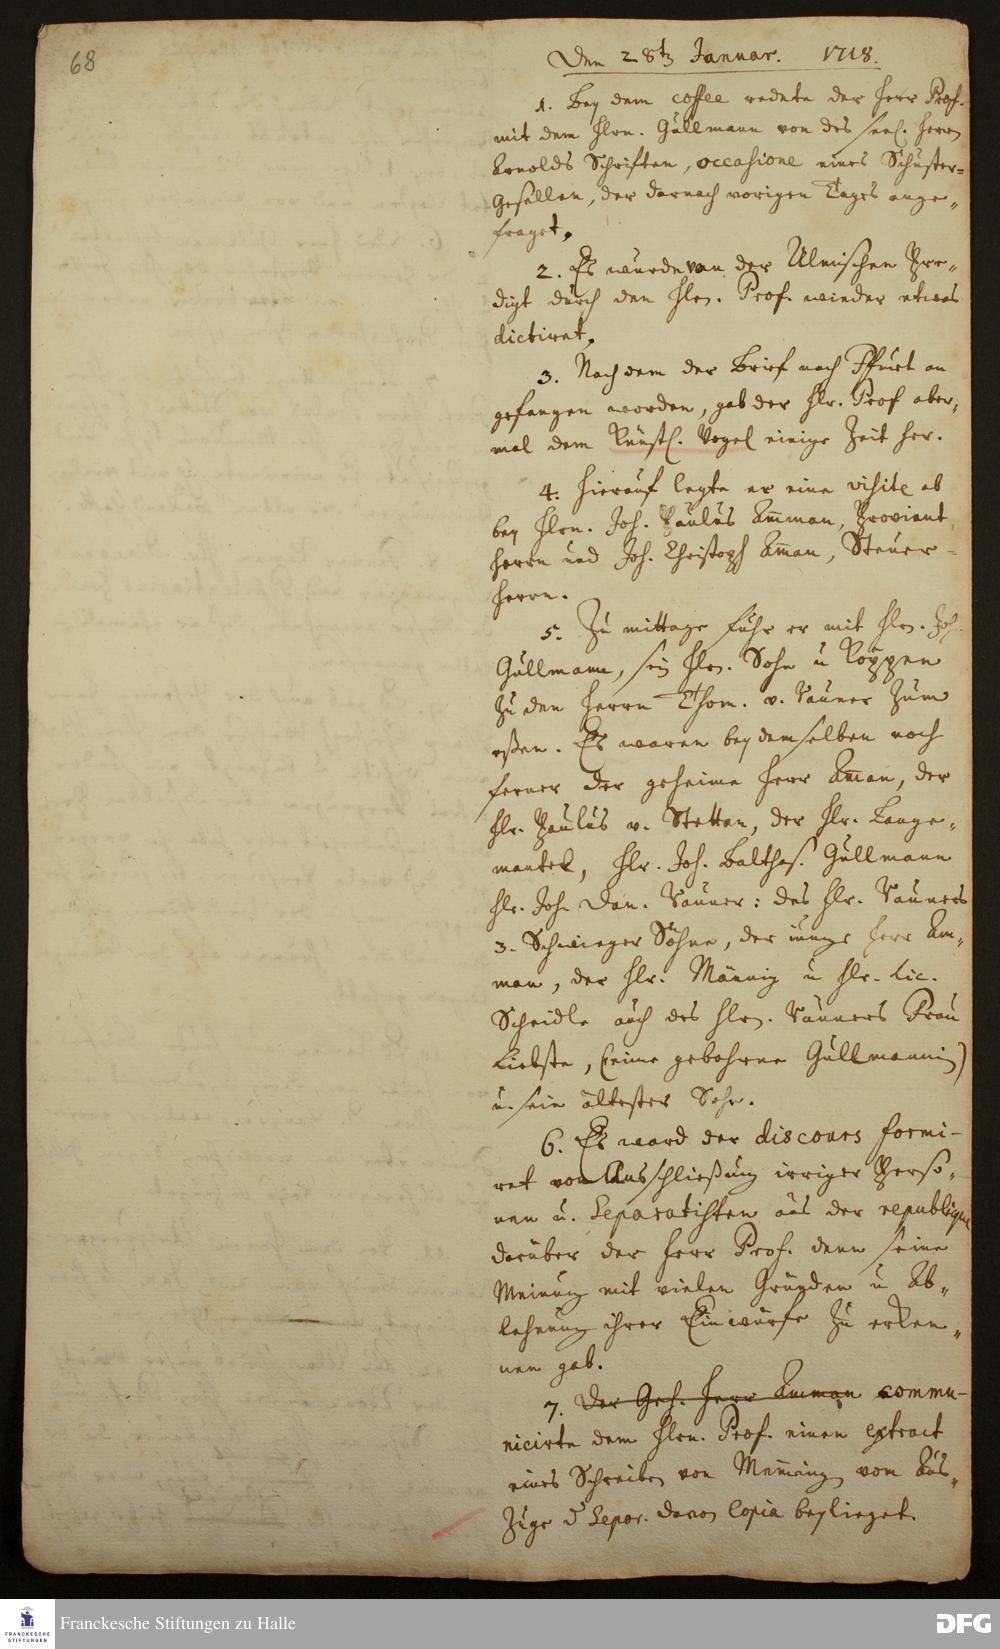 68
Den 28ten Januar. 1718.
1. Bey dem coffee redete der Herr Prof.
mit dem Hrn. Gullmann von des seel. Herrn
Arnolds Schriften, occasione eines Schuster-
Gesellen, der darnach vorigen Tages ange-
fraget.
2. Es wurde von der Ulmischen Pre-
digt durch den Hrn. Prof. wieder etwas
dictiret.
3. Nachdem der Brief nach Pfurt an
gefangen worden, gab der Hr. Prof aber-
mal dem Künstl. Vogel einige Zeit her.
4. Hierauf legte er eine visite ab
bey Hrn. Joh. Paulus Am̄man, Proviant
Herrn und Joh. Christoph Am̄an, Steuer-
Herrn.
5. Zu mittage fuhr er mit Hrn. Joh.
Gullmann, sein Hrn. Sohn u Köppen
zu den Herrn Thom. v. Rauner zum
eßen. Es waren bey demselben noch
ferner der geheime Herr Am̄an, der
Hr. Paulus v. Stetten, der Hr. Lange-
mantel, Hr. Joh. Balthas. Gullmann
Hr. Joh Dan. Rauner: des Hr. Rauners
3. Schwieger Söhne, der junge Herr Am-
man, der Hr. Männig u Hr. Lic.
Scheidle auch des Hrn. Rauners Frau
Liebste, (eine gebohrne Gullmannin)
u. sein ältester Sohn.
6. Es ward der discours formi-
ret von Ausschließung irriger Perso-
nen u. Separatisten aus der republique
darüber der Herr Prof. denn seine
Meinung mit vielen Gründen u Ab-
lehnung ihrer Einwürfe zu erken-
nen gab.
7. Der Geh. Herr Amman commu-
nicirte dem Hrn. Prof. einen extract
eines Schreiben von Mem̄ing vom Aus-
zuge d Separ. davon Copia beylieget.
FRANCKESCHE
STIFTUNGEN
Franckesche Stiftungen zu Halle
DFG